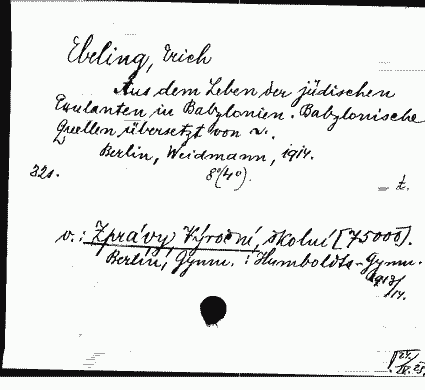 Ebeling, Erich
Aus dem Leben der jüdischen
Exulanten in Babylonien. Babylonische
Quellen übersetzt von ~.
Berlin, Weidmann, 1914.
32s. 8°(4°).
= t.
v.: Zprávy, Výroční, školní [75000].
Berlin, Gymn.: Humboldts-Gymn.
1913/
14.